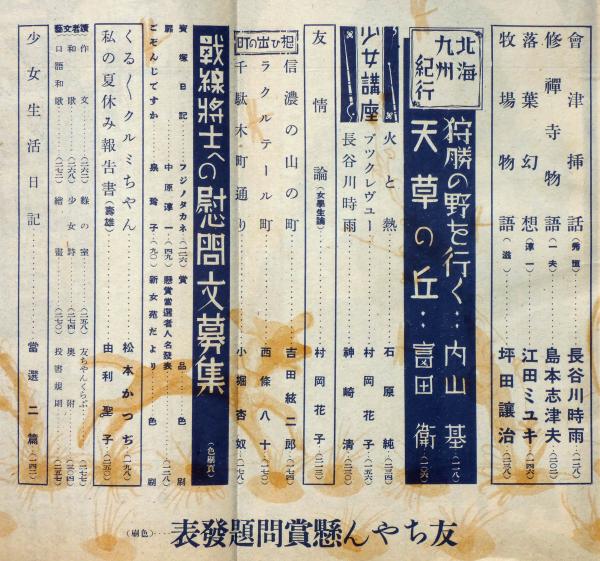 會津挿話(秀恒)……長谷川時雨(一三八)
修禪寺物語(一夫)……島本志津夫(二〇二)
落葉幻想(淳一)……江田ミユキ(一四六)
牧場物語(滋)……坪田讓治(二三八)
北海
九州
紀行
狩勝の野を行く…内山基(一一八)
天草の丘…富田衛(一〇六)
少女講座
火と熱……石原純(二三四)
ブックレヴュー……村岡花子(一五六)
長谷川時雨……神崎清(二三〇)
友情論(女學生論)……村岡花子(一一三)
想ひ出の町
信濃の山の町……吉田絃二郎(一七四)
ラクルテール町……西條八十(一七七)
千駄木町通り……小堀杏奴(一七九)
戰線將士への慰問文募集(色刷頁)
寶塚日記……フジノタカネ(一二六)
賞品……色刷
扉……中原淳一(四九)
懸賞當選者人名發表……(二一八)
ごぞんじですか……泉玲子(九〇)
新女苑だより……色刷
くる〱クルミちゃん……松本かつぢ(一九八)
私の夏休み報告書(壽雄)……由利聖子(二五〇)
讀者文藝
作文……(二六二)
綠の室……(二五八)
友ちやんくらぶ……(二七七)
和歌……(二六八)
少女詩……(二七四)
奥附……(三〇四)
口語和歌……(二七二)
繪畫……(二七〇)
投書規則……(二五七)
少女生活日記……當選二篇(一四二)
友ちやん懸賞問題發表……(色刷)